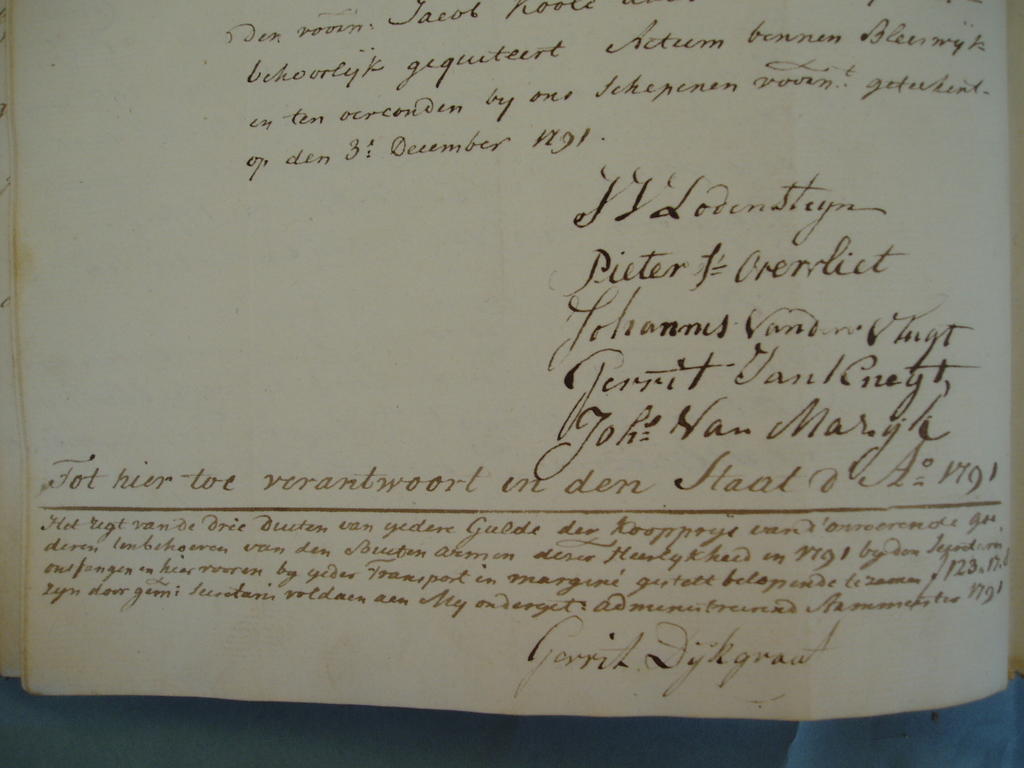 Den voorn: Jacob Koole
behoorlijk gequiteert Actum binnen Bleiswyk
en ten oirconden by ons Schepenen voorn.t getekent
op den 3:e December 1791.
JV Lodensteyn
Pieter Overvliet
Johannis Vander Vlugt
Gerrit Jan Knegt
Joh:s Van Marwyk
Tot hier toe verantwoort in den Staat d' A:o 1791
Het regt van de drie Duiten van yedere Gulde der Kooppryz van d'onroerende goe,
deren ten behoeven van den Buiten armen dezer Heerlykheid in 1791 by den Secretaris
ontfangen en hier vooren by yeder Transport in margine gestelt belopende te zamen ƒ 123.17.8
zyn door gem: Secretaris voldaen aen My onderget: administreerend Aarmmeester 1791
Gerrit Dijkgraaf